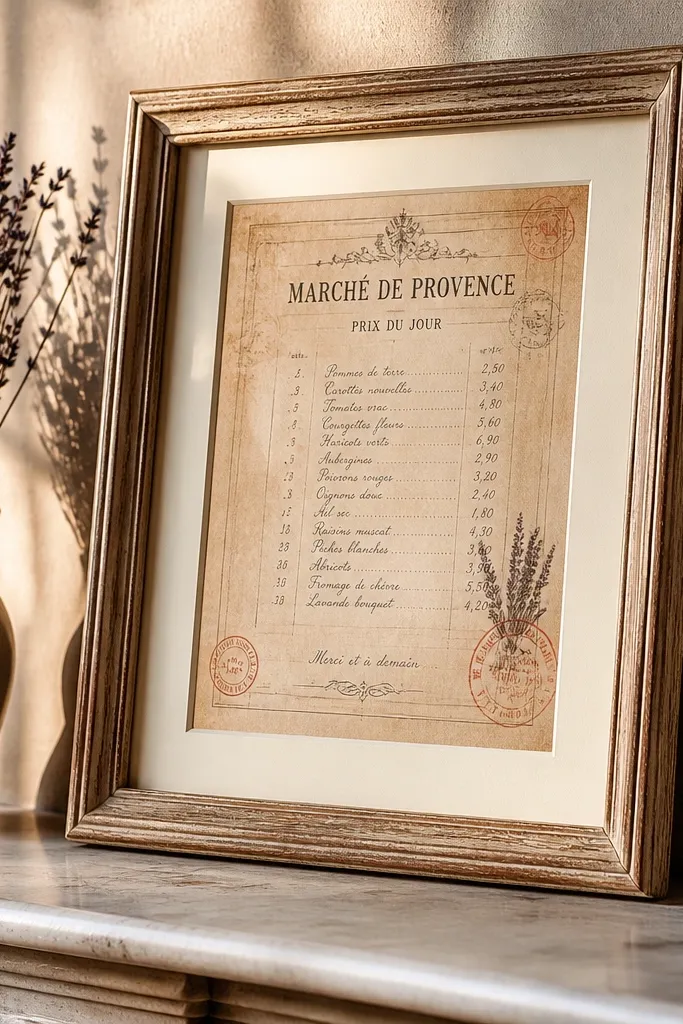 MARCHÉ DE PROVENCE
PRIX DU JOUR
Pommes de terre 2,50
Carottes nouvelles 3,40
Tomates vrac 4,80
Courgettes fleurs 5,60
Haricots verts 6,90
Aubergines 2,90
Poivrons rouges 3,20
Oignons doux 2,40
Ail sec 1,80
Raisins muscat 4,30
Pêches blanches
Abricots
Fromage de chèvre 5,50
Lavande bouquet 4,20
Merci et à demain